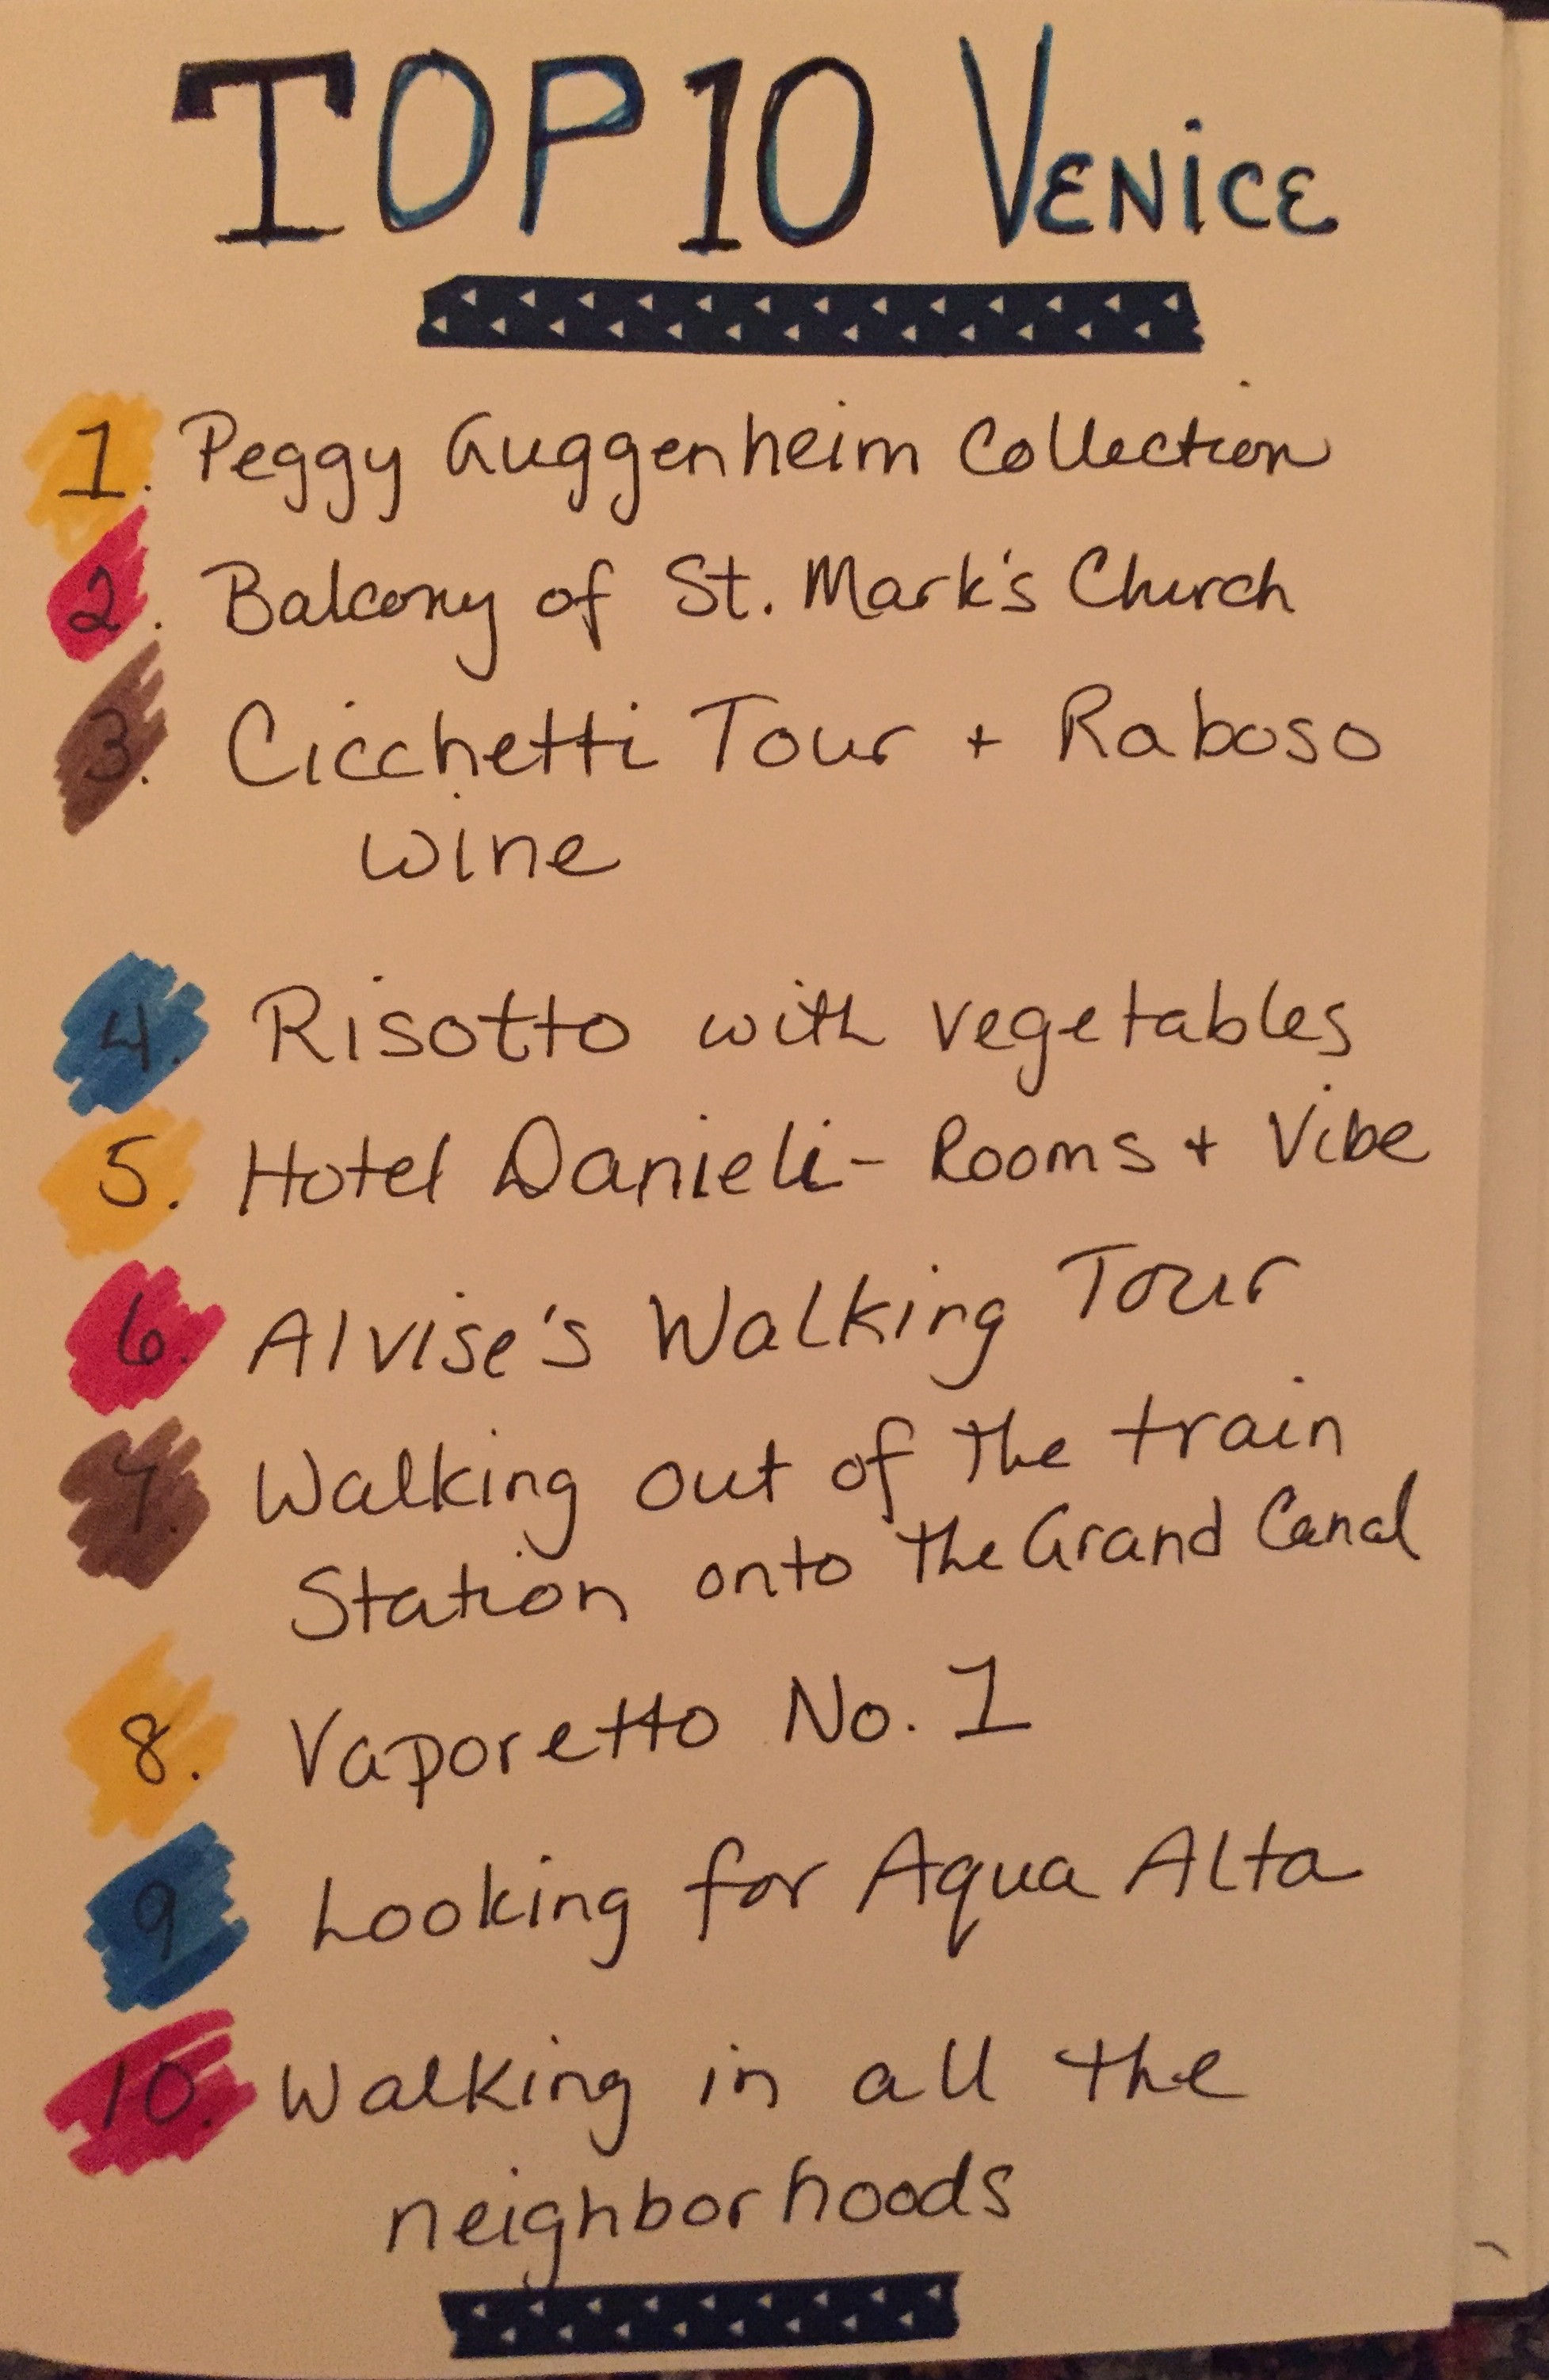 TOP 10 VENICE
1. Peggy Guggenheim Collection
2. Balcony of St. Mark's Church
3. Cicchetti Tour + Raboso
wine
4. Risotto with vegetables
5. Hotel Danieli - Rooms + Vibe
6. Alvise's Walking Tour
7. Walking out of the train
Station onto the Grand Canal
8. Vaporetto No. 1
9 Looking for Aqua Alta
10. Walking in all the
neighborhoods